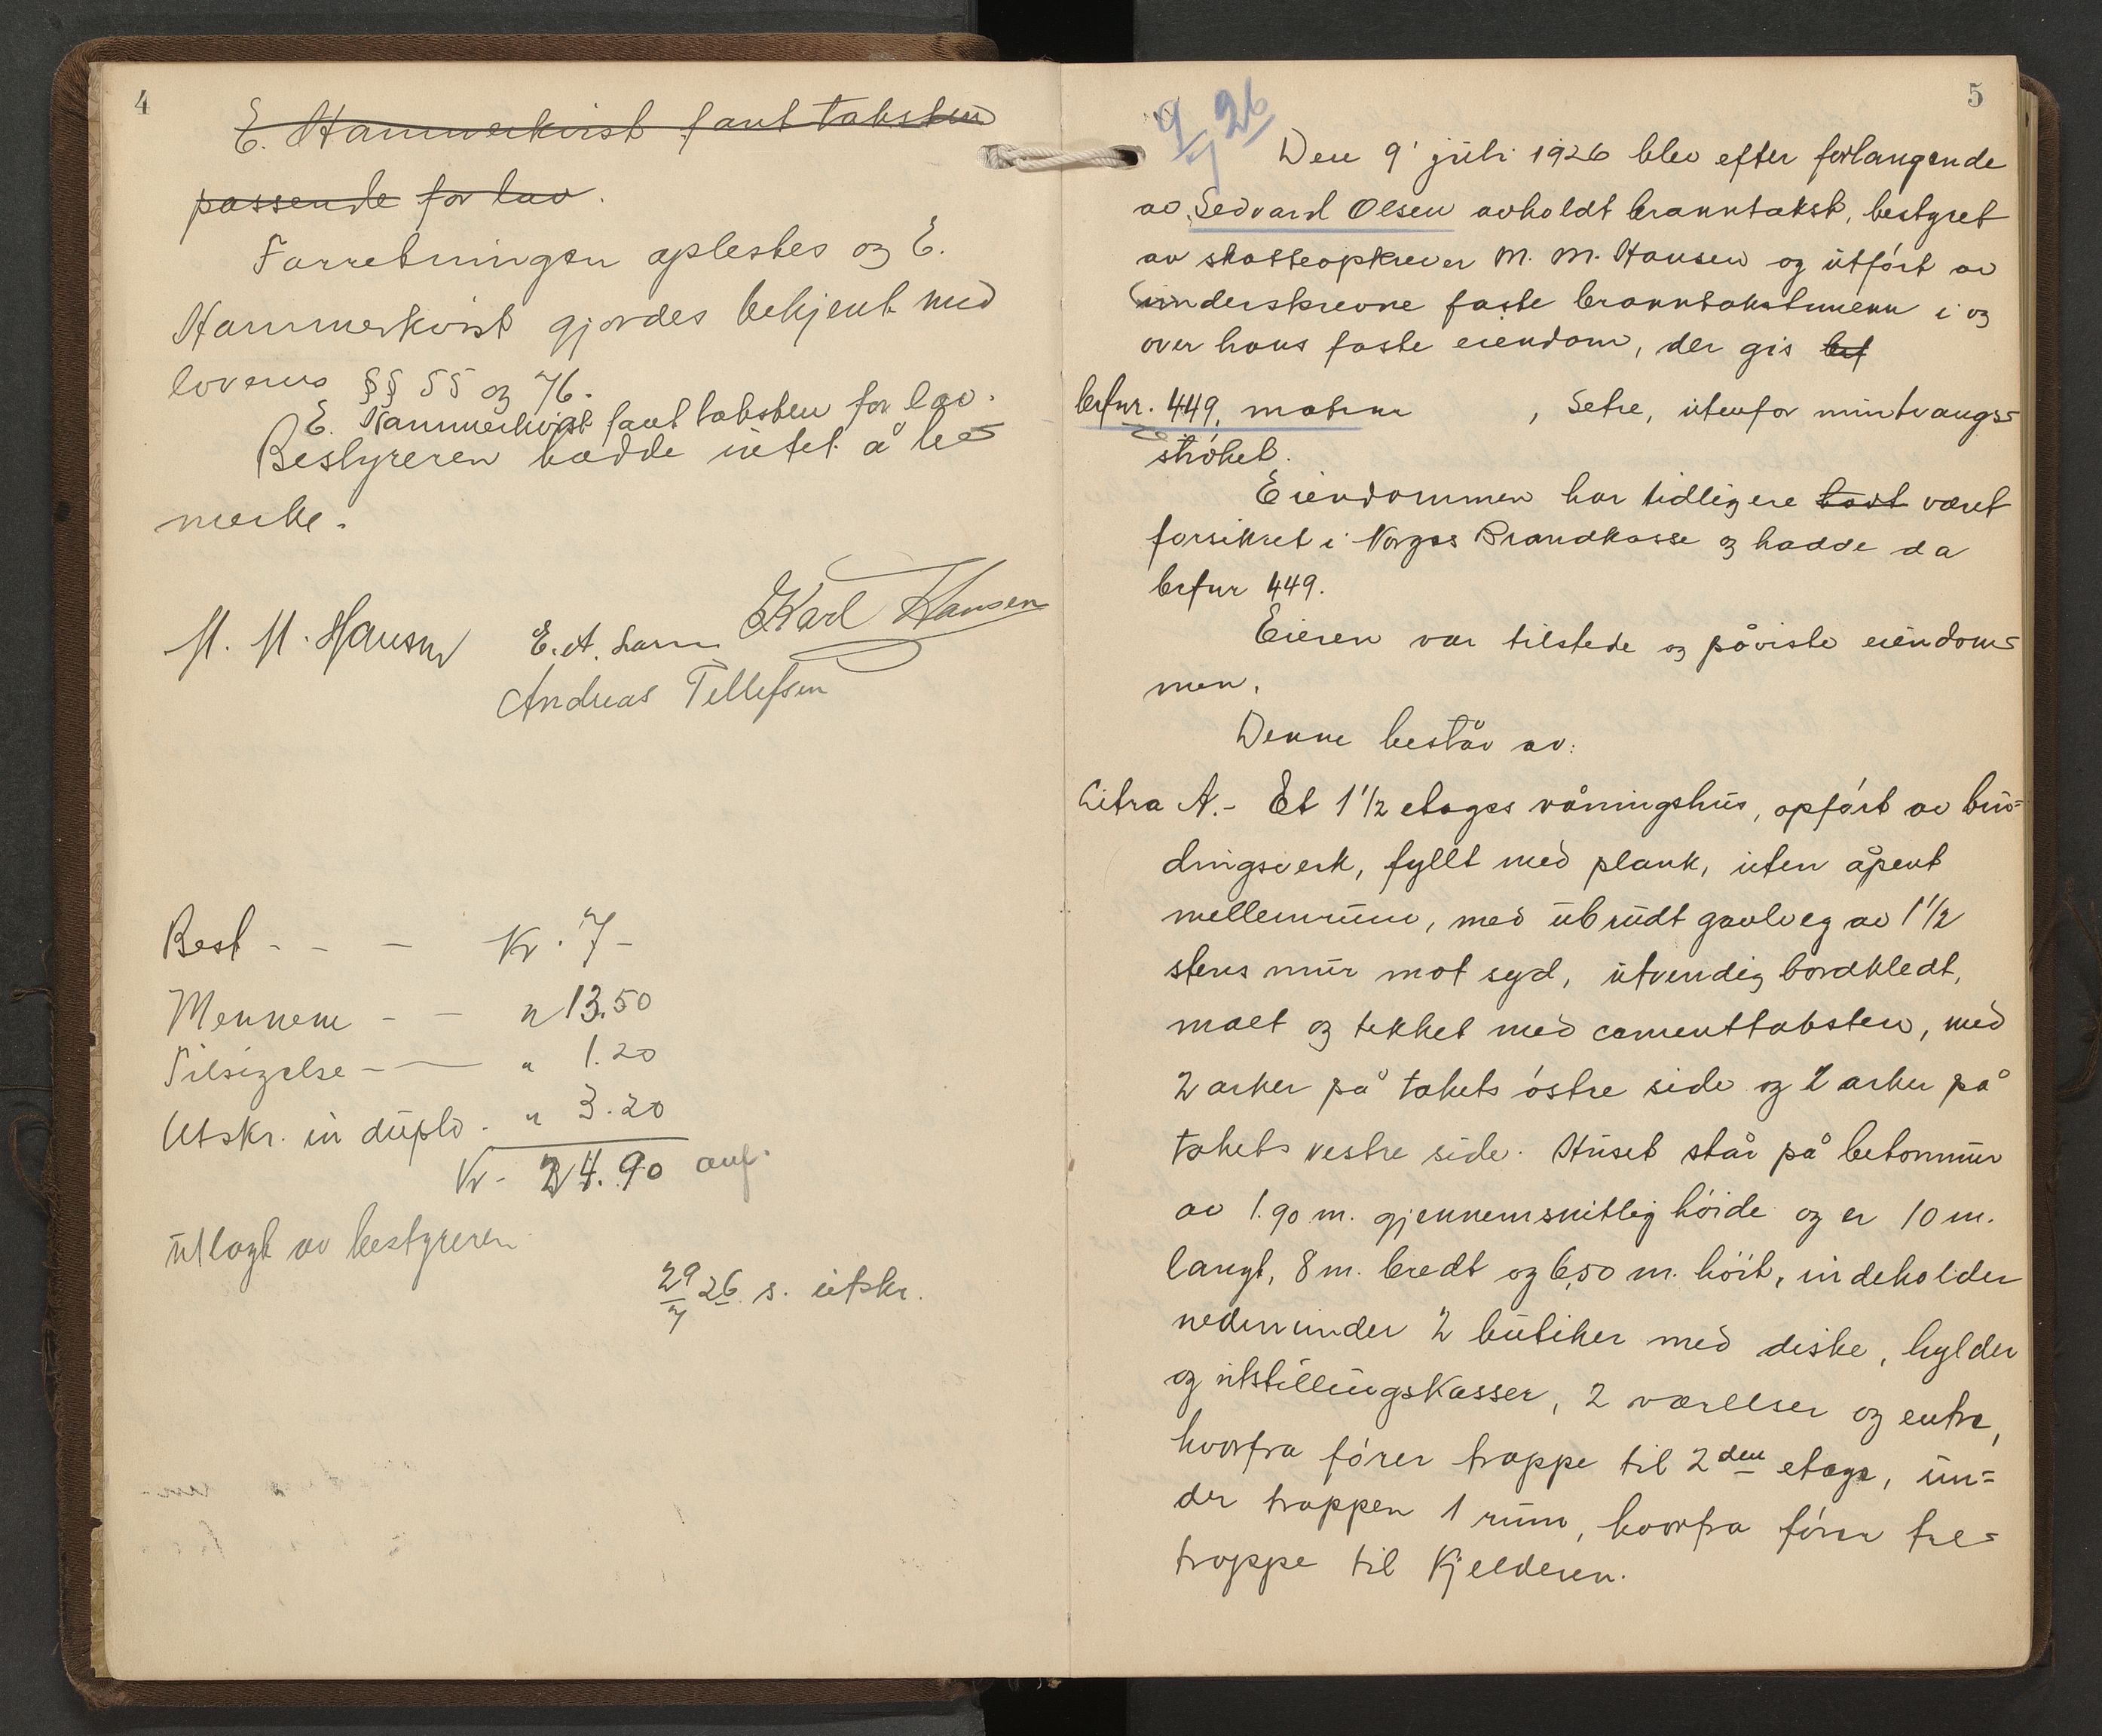 4
E. Hammerkvist fant taksten
passende for lav.
Forretningen oplestes og E.
Hammerkvist gjordes bekjent med
lovens §§ 55 og 76.
E. Hammerkvist fant taksten for lav.
Bestyreren hadde intet å be=
merke.
M. M. Hansen E. A. Karl Hansen
Andreas Tellefsen
Best - - - Kr. 7 -
Mennene - - " 13.50
Tilsigelse - - " 1.20
Utskr. in duplo. " 3.20
Kr - 24.90 anf.
utlagt av bestyreren
29/7 26 s. utskr.
5
9/7 26
Den 9' juli 1926 blev efter forlangende
av Sedvard Olsen avholdt branntakst, bestyret
av skatteopkrever M. M. Hansen og utført av
underskrevne faste branntakstmenn i og
over hans faste eiendom, der gis brf
brfnr. 449, matrnr , Setre, utenfor murtvangs=
strøket.
Eiendommen har tidligere været
forsikret i Norges Brandkasse og hadde da
brfnr 449.
Eieren var tilstede og påviste eiendom=
men.
Denne består av:
Litra A. - Et 1 1/2 etages våningshus, opført av bin=
dingsverk, fyllt med plank, uten åpent
mellemrum, med ubrudt gavlveg av 1 1/2
stens mur mot syd, utvendig bordkledt,
malt og tekket med cementtaksten, med
2 arker på takets østre side og 2 arker på
takets vestre side. Huset står på betonmur
av 1.90 m. gjennemsnitlig høide og er 10 m.
langt, 8 m. bredt og 6,50 m. høit, indeholder
nedenunder 2 butiker med diske, hylder
og utstillingskasser, 2 værelser og entre,
hvorfra fører trappe til 2den etage, un=
der trappen 1 rum, hvorfra fører tre=
trappe til kjelderen.